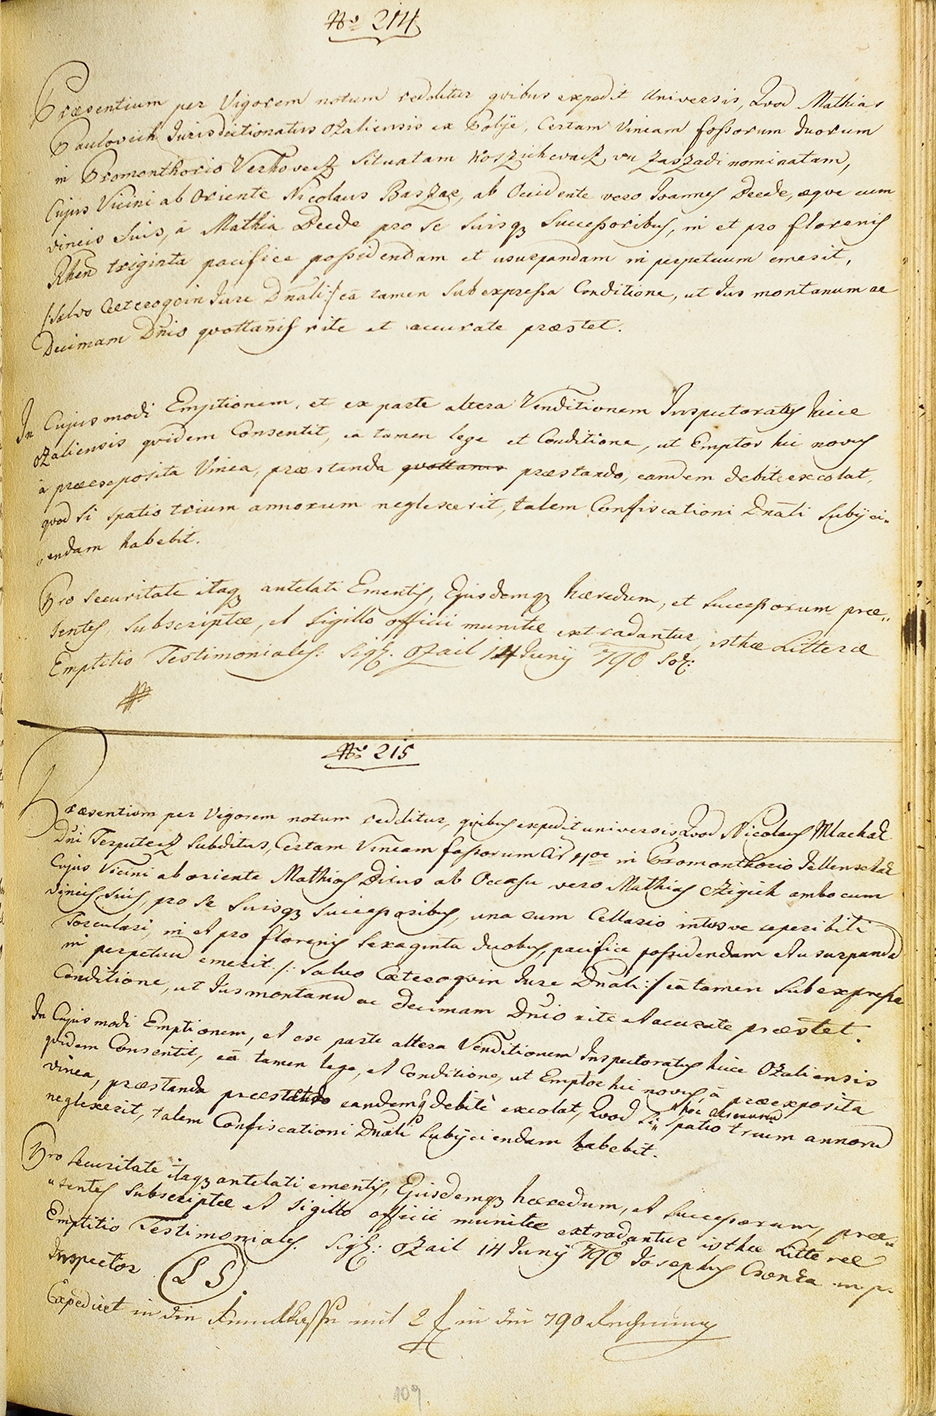 No 214
Præsentium per Vigorem notum redditur quibus expedit Universis, Quod Mathias
Paulovich Jurisdictionatus Ozaliensis ex Polije, Certam Vineam fossorum duorum
in Promonthorio Verhovecz Situatam vu Zaszadi nominatam,
Cujus Vicini ab Oriente Nicolaus ab Occidente vero Joannes Decde, æque cum
vineis Suis, à Mathia Decde pro se Suisq Successoribus, in et pro florenis
Rhen triginta pacifice possidendam et usuapandam in perpetuum emerit,
/:Salvo Cæteroquin Jure Dnali:/ eâ tamen Sub expressa Conditione, ut Jus montanum ac
Decimam Dnio quottañis rite et accurate præstet.
In Cujusmodi Emptionem, et ex parte altera Venditionem Inspectoratus hicce
Ozaliensis quidem Consentit, eâ tamen lege et Conditione, ut Emptor hic novus
à præexposita Vinea, præstanda quottanis præstando, eandem debite excolat,
quod si spatio trium annorum neglexerit, talem Confiscationi Dnali Subijci-
endam habebit.
Pro Securitate itaq antelati Ementis, Ejusdemq hæredum, et Successorum præ„
sentes Subscriptæ, et Sigillo officii munitæ extradantur isthæ Litteræ
Emptitio Testimoniales. Sigl: Ozail 14 Junij 790
No 215
Præsentium per Vigorem notum redditur, quibus expedit universis, Quod Nicolaus Mlachak
Dni Subditus, Certam Vineam fossorum in Promonthorio
Cujus Vicini ab oriente Mathias ab Occasu vero Mathias ambo cum
vineis Suis, pro se Suisq Successoribus, una cum Cellario
Torculari, in et pro florenis Sexaginta duobus, pacifice possidendam et usuapanda
in perpetuu emerit. /: Salvo Cæteroquin Jure Dnali:/ eâ tamen Sub expressa
Conditione, ut Jus montanu ac Decimam Dnio rite et accurate præstet.
In Cujusmodi Emptionem, et ex parte altera Venditionem Inspectoratus hicce Ozaliensis
quidem Consentit, eâ tamen lege, et Conditione, ut Emptor hic novus, à præexposita
vinea, præstanda præstando eandemq debite excolat, Quod Si spatio trium annoru
neglexerit, talem Confiscationi Dnali Subijciendam habebit.
Pro Securitate itaq antelati ementis, Ejusdemq hæredum, et Successorum, præ„
„sentes Subscriptæ et Sigillo officii munitæ extradantur isthæ Litteræ
Emptitio Testimoniales. Sigl: Ozail 14 Junij 790 Josephus m p.
Inspector (L S)
Expediret in die mit 2 f in die 790 Rechnung
109